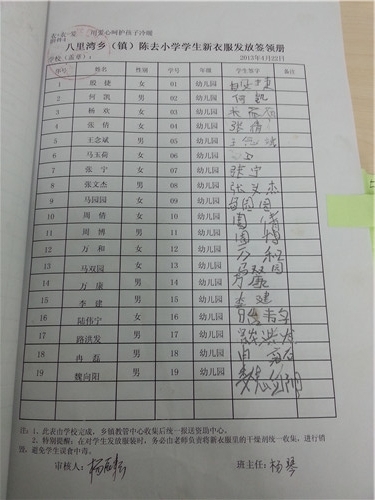 用爱心呵护孩子冷暖
八里湾乡（镇）陈去小学学生新衣服发放签领册
学校（盖章）： 2013年4月22日
序号 姓名 性别 学号 年级 学生签字 备注
1 殷捷 女 01 幼儿园
2 何凯 男 02 幼儿园 何凯
3 杨欢 女 03 幼儿园
4 张倩 女 04 幼儿园 张倩
5 王念斌 男 05 幼儿园
6 马玉荷 女 06 幼儿园
7 张宁 女 07 幼儿园 张宁
8 张文杰 男 08 幼儿园 张文杰
9 马园园 女 09 幼儿园
10 周倩 女 10 幼儿园 周倩
11 周博 男 11 幼儿园 周博
12 万和 女 12 幼儿园 万和
13 马双园 女 13 幼儿园 马双园
14 万康 男 14 幼儿园
15 李建 男 15 幼儿园 李建
16 陆伟宁 女 16 幼儿园
17 路洪发 男 17 幼儿园
18 冉磊 男 18 幼儿园
19 魏向阳 男 19 幼儿园
注：1、此表由学校完成，乡镇教管中心收集后统一报送资助中心。
2、特别提醒：在对学生发放服装时，务必由老师负责将新衣服里的干燥剂统一收集，进行销毁，避免学生误食中毒。
审核人： 班主任：杨琴